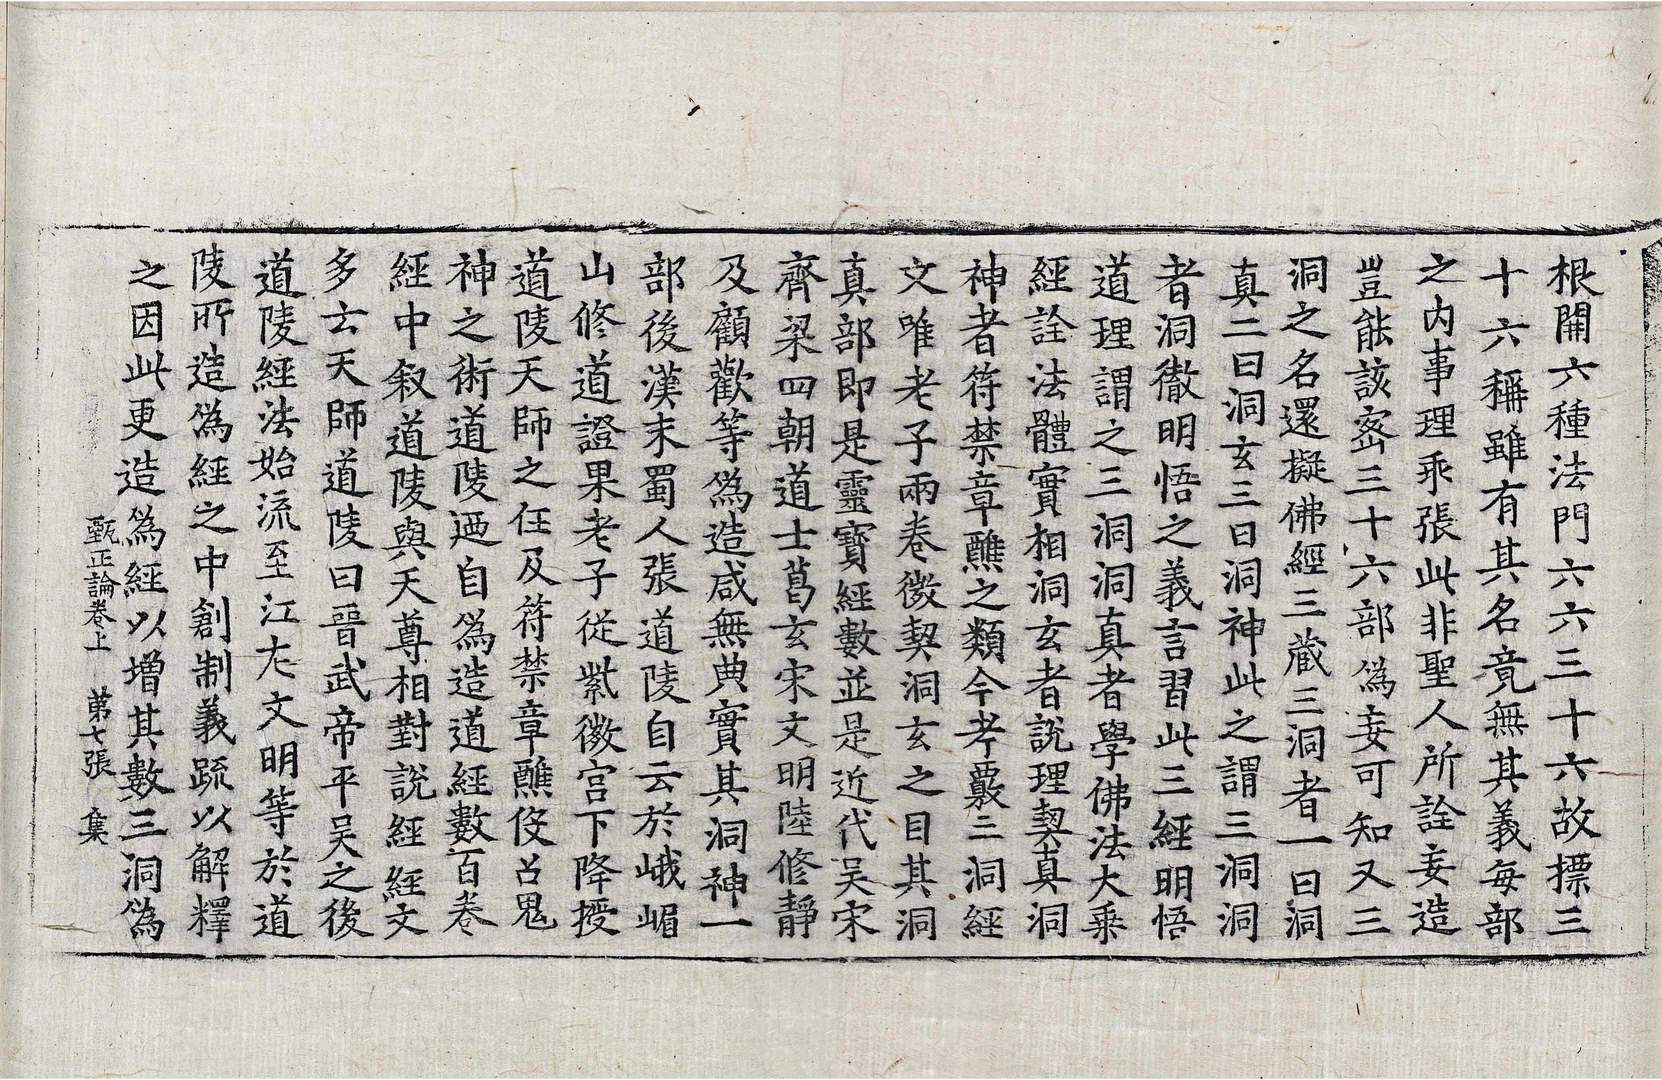 根開六種法門六六三十六故摽三
十六稱雖有其名竟無其義每部
之內事理乖張此非聖人所詮妄造
豈能該宻三十六部爲妄可知又三
洞之名還擬佛經三藏三洞者一曰洞
真二曰洞玄三曰洞神此之謂三洞洞
者洞徹明悟之義言習此三經明悟
道理謂之三洞洞真者學佛法大乗
經詮法體實相洞玄者說理契真洞
神者符禁章醮之類今考覈三洞經
文唯老子兩卷微契洞玄之目其洞
真部即是靈寶經數並是近代吴宋
齊梁四朝道士葛玄宋文明陸修靜
及顧歡等爲造咸無典實其洞神一
部後漢末蜀人張道陵自云於峨嵋
山修道證果老子從紫微宫下降授
道陵天師之任及符禁章醮伇召鬼
神之術道陵迺自爲造道經數百卷
經中叙道陵與天尊相對說經經文
多云天師道陵曰晉武帝平吴之後
道陵經法始流至江左文明等於道
陵所造爲經之中創制義䟽以解釋
之因此更造爲經以增其數三洞爲
甄正論卷上　第七張　集